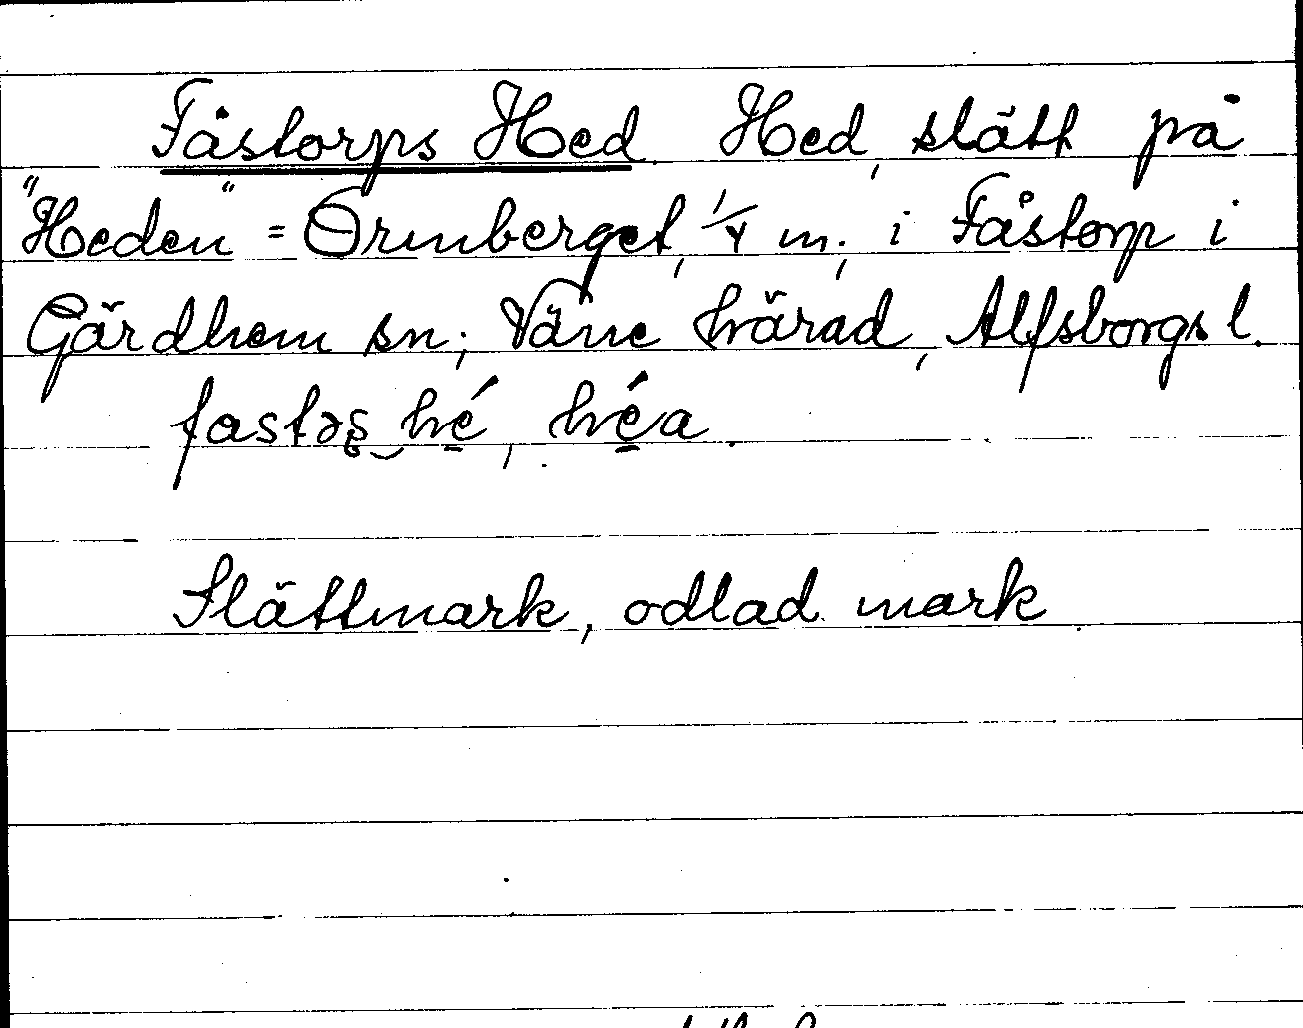 Fåstorps Hed. Hed, slätt på
"Heden" = Ormberget, 1/4 m; i Fåstorp i
Gärdhem sn; Väne härad, Älfsborgs l.
fastəs hé, héa.
Slättmark, odlad mark.